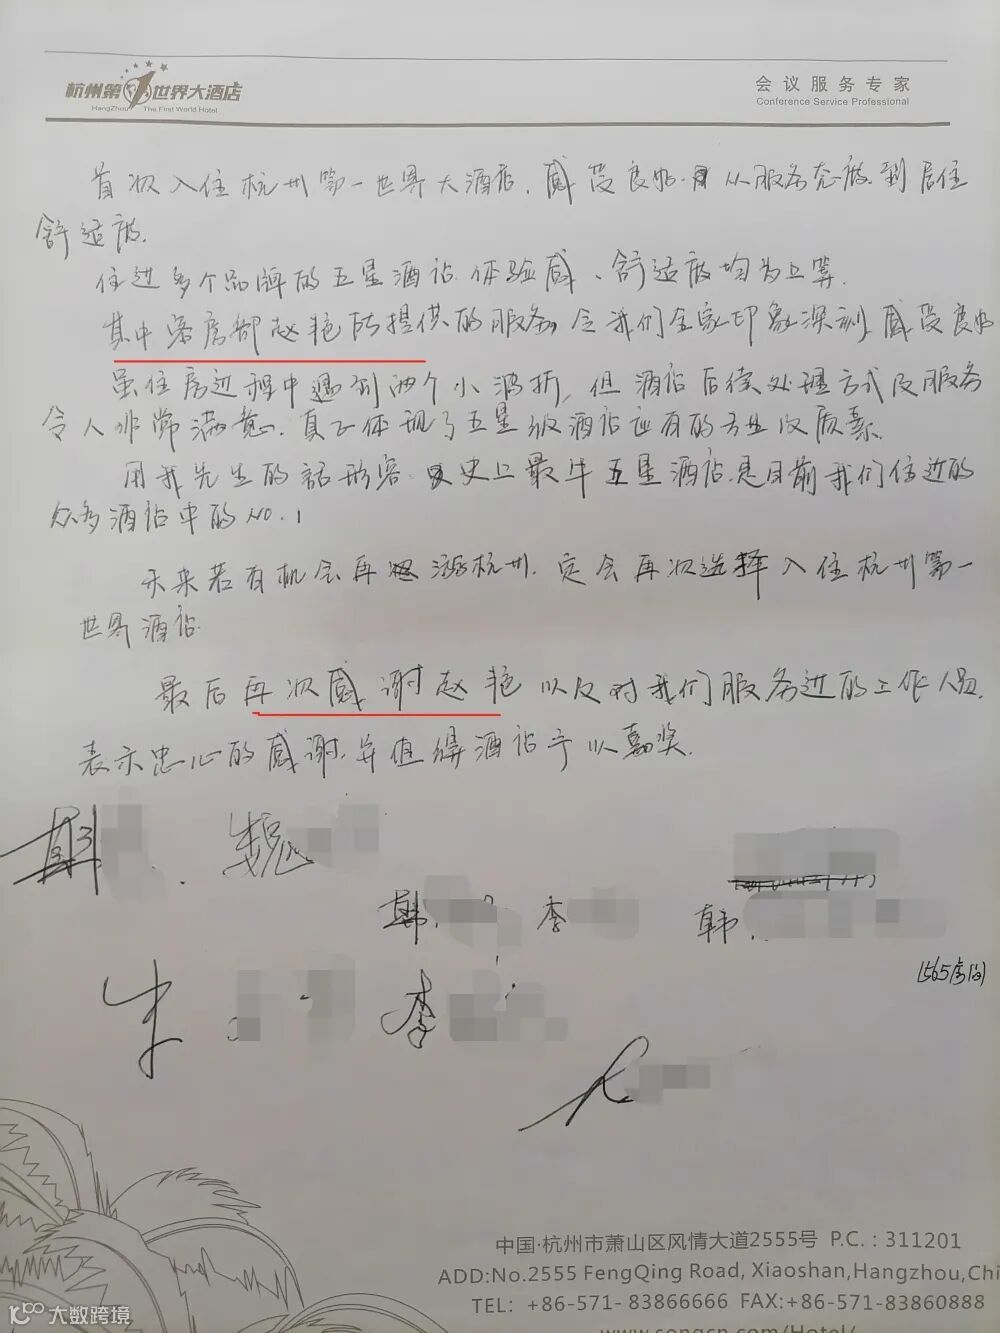 杭州第1世界大酒店
HangZhou The First World Hotel
会议服务专家
Conference Service Professional
首次入住杭州第一世界大酒店,感受良好.从服务态度.到居住
舒适度.
住过多个品牌的五星酒店.体验感、舒适度均为上等.
其中客房部赵艳所提供的服务,令我们全家印象深刻,感受良好
虽住房过程中遇到两个小波折,但酒店后续处理方式及服务
令人非常满意.真正体现了五星级酒店应有的专业及质素.
用我先生的話形容史上最牛五星酒店.是目前我们住过的
众多酒店中的NO.1
未来若有机会再游杭州.定会再次选择入住杭州第一
世界酒店.
最后再次感谢赵艳以及对我们服务过的工作人员.
表示忠心的感谢.并值得酒店予以嘉奖.
魏
韩 李 韩
1565房间
朱 李
中国·杭州市萧山区风情大道2555号 P.C.:311201
ADD:No.2555 FengQing Road, Xiaoshan,Hangzhou,Chi
TEL: +86-571- 83866666 FAX:+86-571-83860888
www.songcn.com/Hotel/
大数跨境